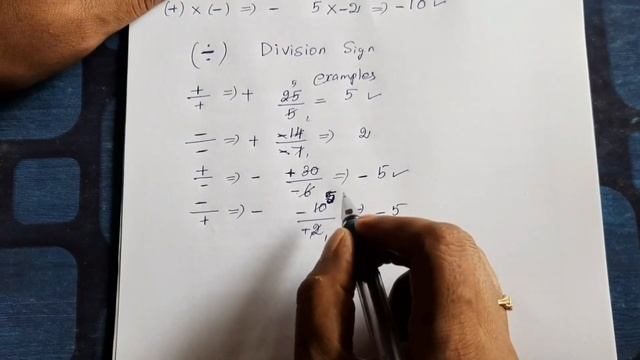 (+) × (-) ⇒ - 5 × -2 ⇒ -10 ✓
(÷) Division Sign
examples
+/+ ⇒ + 25/5 = 5 ✓
-/- ⇒ + -14/-7 ⇒ 2
+/- ⇒ - +30/-6 ⇒ -5 ✓
-/+ ⇒ - -10/+2 ⇒ -5